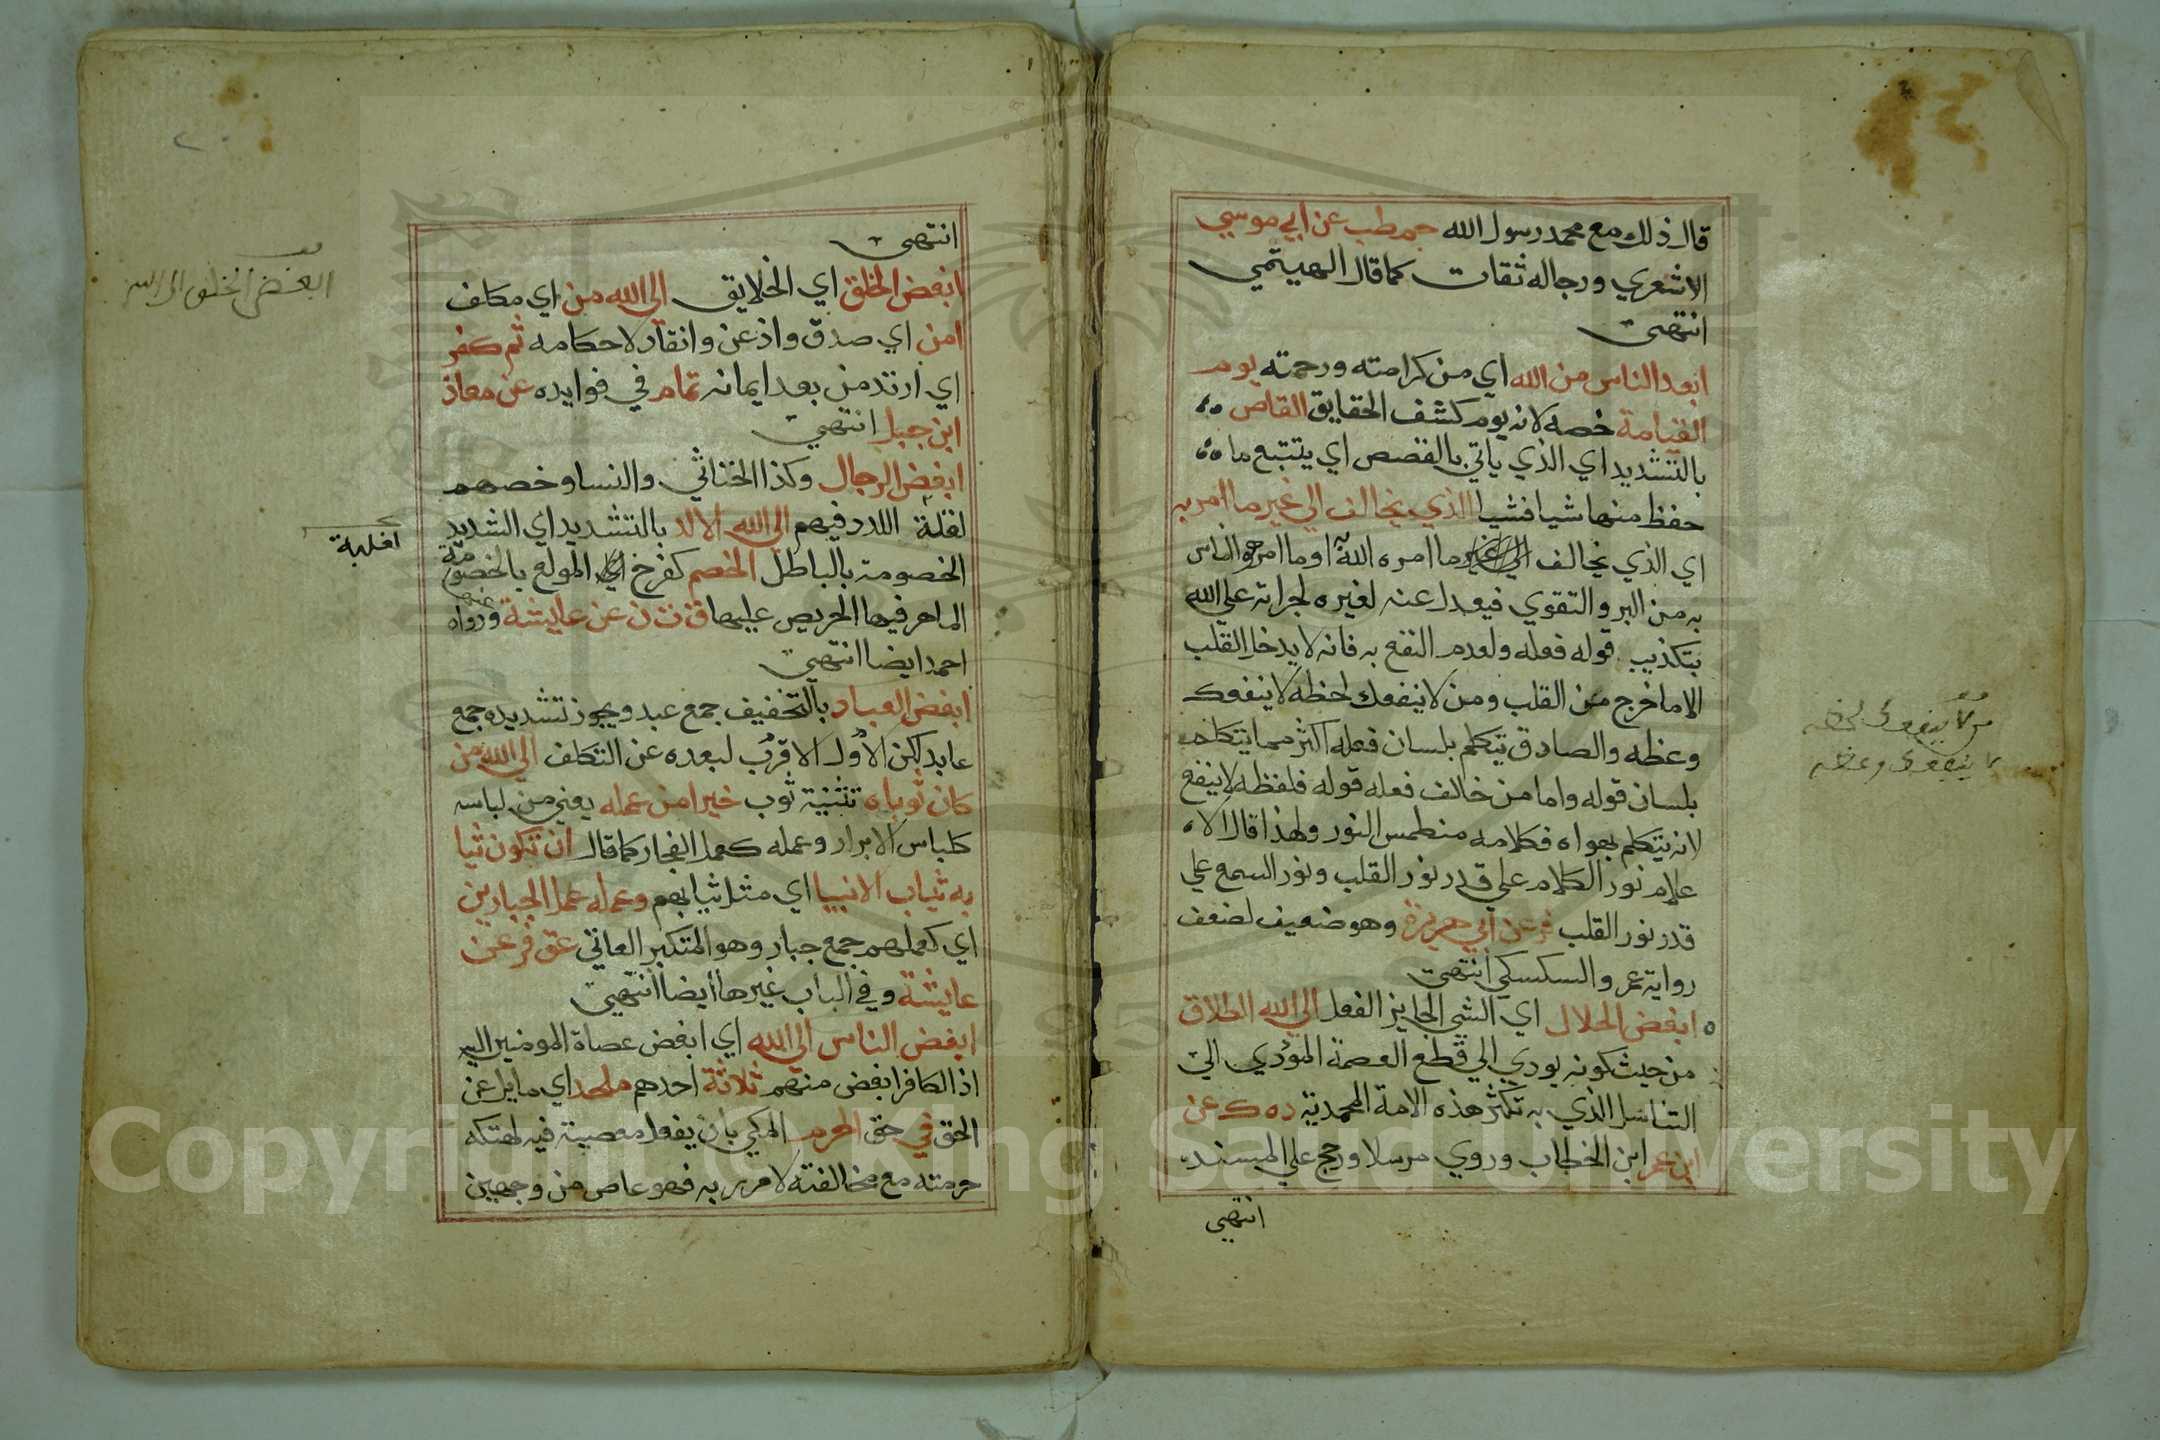 قال ذلك مع محمد رسول الله حم طب عن ابي موسي
الاشعري ورجاله ثقات كما قال الهيتمي
انتهى
ابعد الناس من الله اي من كرامته ورحمته يوم
القيامة خصه لانه يوم كشف الحقايق القاص
بالتشديد اي الذي ياتي بالقصص اي يتتبع ما
حفظ منها شيا فشيا الذي يخالف الي غير ما امر به
اي الذي يخالف الي غير ما امره الله او ما امر هو الناس
به من البر والتقوي فيعدل عنه لغيره لجراته علي الله
بتكذيب قوله فعله ولعدم النفع به فانه لا يدخل القلب
الا ما خرج من القلب ومن لا ينفعك لحظه لا ينفعك
وعظه والصادق يتكلم بلسان فعله اكثر مما يتكلم
بلسان قوله واما من خالف فعله قوله فلفظه لا ينفع
لانه يتكلم بهواه فكلامه منطمس النور ولهذا قال الا
علام نور الكلام علي قدر نور القلب ونور السمع علي
قدر نور القلب فر عن ابي هريرة وهو ضعيف لضعف
رواية عمرو السكسكي انتهى
ابغض الحلال اي الشي الجايز الفعل الي الله الطلاق
من حيث كونه يودي الي قطع العصمة المؤدي الي
التناسل الذي به تكثر هذه الامة المحمدية د ه ك عن
ابن عمر ابن الخطاب وروي مرسلا ورجح علي المسند
انتهى
من لا ينفعك لحظه
لا ينفعك وعظه
انتهى
ابغض الخلق اي الخلايق الي الله من اي مكلف
امن اي صدق واذعن وانقاد لاحكامه ثم كفر
اي ارتد من بعد ايمانه تمام في فوايده عن معاذ
ابن جبل انتهى
ابغض الرجال وكذا الخناثي والنسا وخصهم
لغلبة اللدد فيهم الي الله الالد بالتشديد اي الشديد
الخصومة بالباطل الخصم كفرح اي المولع بالخصومة
الماهر فيها الحريص عليها ق ت ن عن عايشة ورواه عنهم
احمد ايضا انتهى
ابغض العباد بالتخفيف جمع عبد ويجوز تشديده جمع
عابد لكن الاول الاقرب لبعده عن التكلف الي الله من
كان ثوباه تثنية ثوب خيرا من عمله يعني من لباسه
كلباس الابرار وعمله كعمل الفجار كما قال ان تكون ثيا
به ثياب الانبيا اي مثل ثيابهم وعمله عمل الجبارين
اي كعملهم جمع جبار وهو المتكبر العاتي عق فر عن
عايشة وفي الباب غيرها ايضا انتهى
ابغض الناس الي الله اي ابغض عصاة المومنين اليه
اذ الكافر ابغض منهم ثلاثة احدهم ملحد اي مايل عن
الحق في حق الحرم المكي بان يفعل معصية فيه لهتكه
حرمته مع مخالفته لامر ربه فهو عاص من وجهين
ابغض الخلق الي الله
لغلبة
Copyright © King Saud University
1957